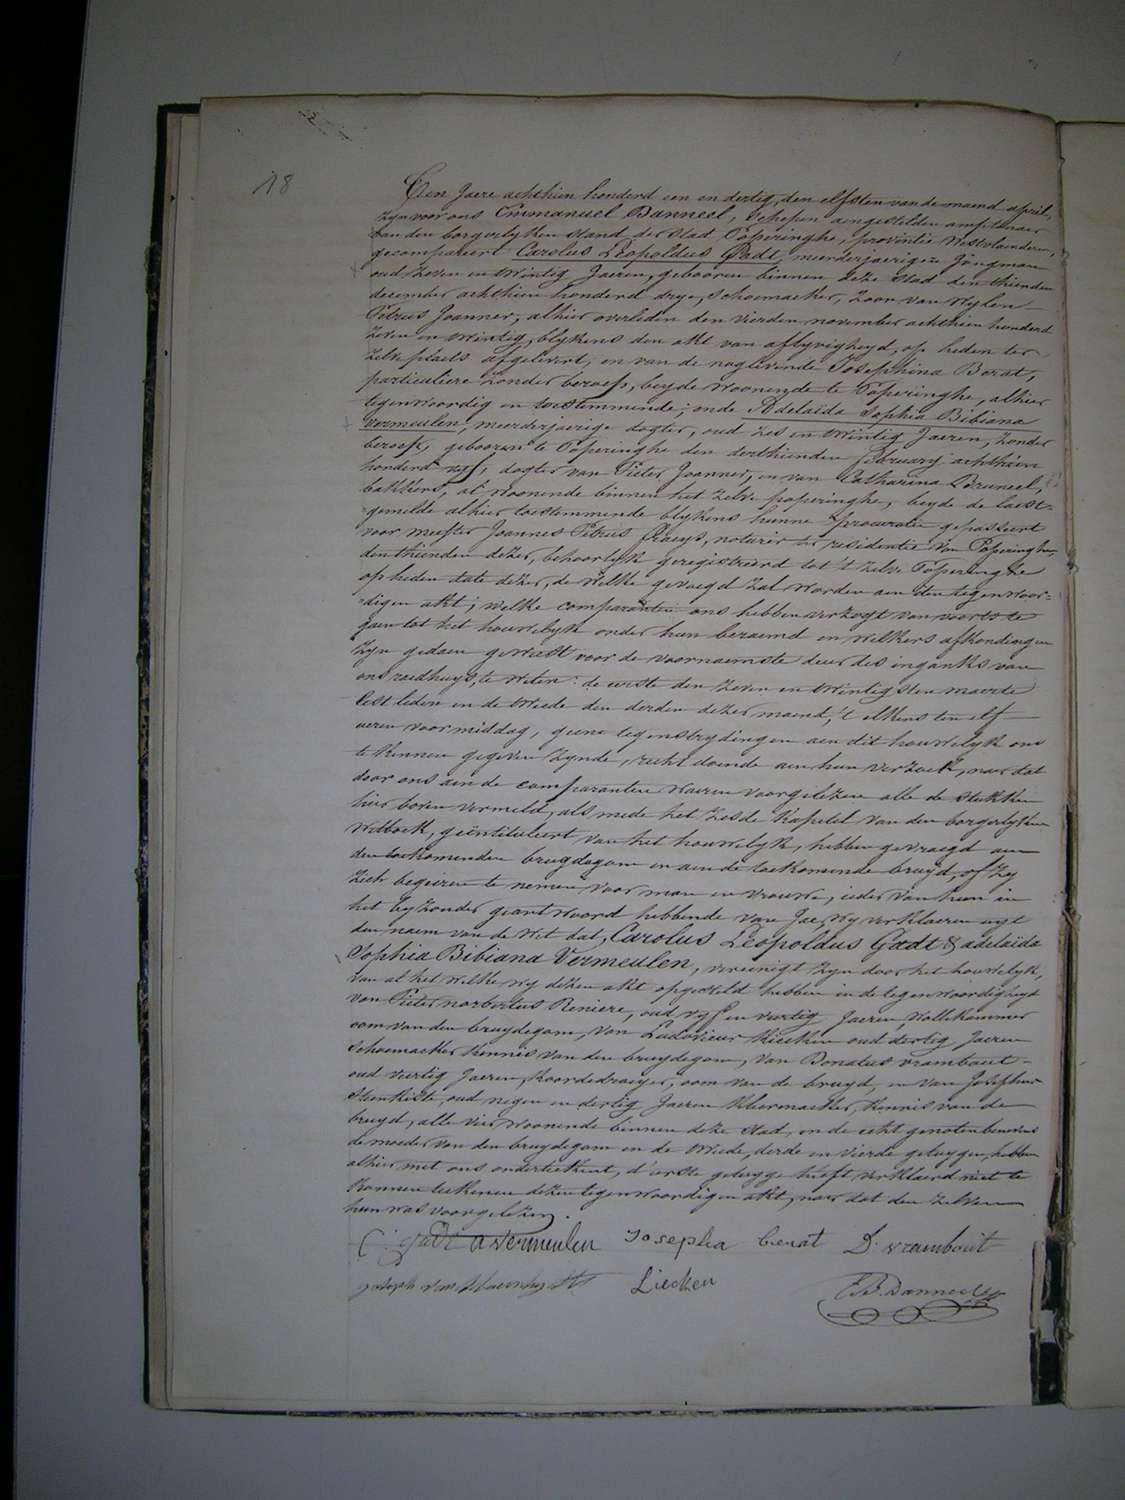 18
Den Jaere achthien honderd een en dertig, den elfsten van de maend april,
zyn voor ons Emmanuel Banneel, schepen aengestelden amptenaer
van den borgerlyken stand der stad Poperinghe, provintie Westvlanderen,
gecompareert Carolus Leopoldus Gadt, meerderjaerigen jongman
oud zeven en twintig Jaeren, gebooren binnen deze stad den thienden
december achthien honderd drye, schoemaeker, zoon van wylen
Petrus Joannes, alhier overleden den vierden november achthien honderd
zeven en twintig, blykens den akt van aflyvigheyd, op heden ter
zelve plaets afgelivert, en van de naglevende Josephina Berat,
particuliere zonder beroep, beyde woonende te Poperinghe, alhier
tegenwoordig en toestemmende; ende Adelaïda Sophia Bibiana
Vermeulen, meerderjaerige dogter, oud zes en twintig Jaeren, zonder
beroep, gebooren te Poperinghe den derthienden february achthien
honderd vyf, dogter van Pieter Joannes, en van Catharina Bruneel,
bakkers, al woonende binnen het zelve poperinghe, beyde de laest-
gemelde alhier toestemmende blykens hunne procuratie gepasseert
voor meester Joannes Petrus, notaris ter residentie van Poperinghe
den thienden dezer, behoorlyk geregistreerd tot 't zelve Poperinghe
op heden date dezer, de welke gevoegd zal worden aen den tegenwoor-
digen akt; welke comparanten ons hebben verzogt van voorts te
gaen tot het houwelyk onder hun beraemd en welkers afkondingen
zyn gedaen geweest voor de voornaemste deur des ingangs van
ons raedhuys, te weten: de eerste den zeven en twintigsten maerte
lest leden en de twede den derden dezer maend, 't elkens ten elf
ueren voormiddag, geene tegenstrydingen aen dit houwelyk ons
te kennen gegeven zynde, recht doende aen hun verzoek, naer dat
door ons aen de comparanten waeren voorgelezen alle de stukken
hier boven vermeld, als mede het zesde kapitel van den borgerlyken
Wetboek, geïntituleert van het houwelyk, hebben gevraegd aen
den toekomenden bruydegom en aen de toekomende bruyd, of zy
zich begeiren te nemen voor man en vrouw, ieder van hun in
het byzonder geantwoord hebbende van Jae, wy verklaeren uyt
den naem van de wet dat, Carolus Leopoldus Gadt & adelaïda
Sophia Bibiana Vermeulen, vereenigt zyn door het houwelyk,
van al het welke wy dezen akt opgesteld hebben in de tegenwoordigheyd
van Pieter norbertus Reniere, oud vyf en veertig Jaeren, wollekammer
oom van den bruydegom, van Ludovicus Liecken oud dertig Jaeren
Schoemaeker kennis van den bruydegom, van Donatus vrambout
oud veertig Jaeren, koordedraeyer, oom van de bruyd, en van Josephus
oud negen en dertig Jaeren kleermaeker, kennis van de
bruyd, alle vier woonende binnen deze stad, en de echtgenoten benevens
de moeder van den bruydegom en de twede, derde en vierde getuygen, hebben
alhier met ons onderteekent, d'eerste getuyge heeft verklaerd niet te
konnen teekenen dezen tegenwoordigen akt, naer dat den zelven
hun was voorgelezen.
C: Gadt avermeulen Josepha berat D. vrambout
Liecken
E. B. Banneel